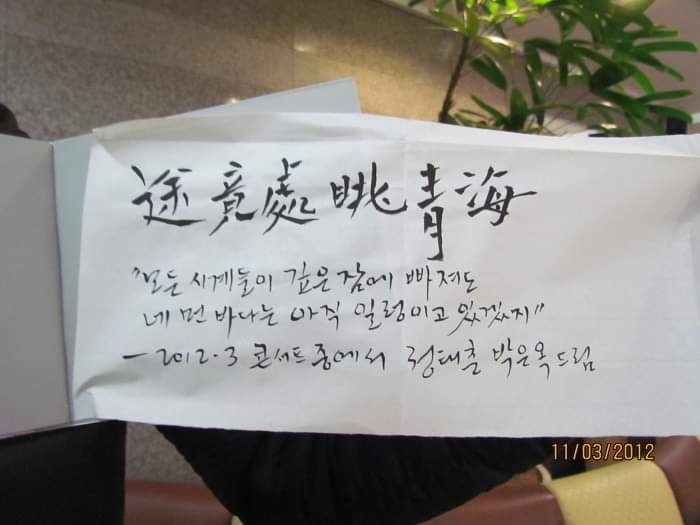 途竟處眺青海
"모든 시계들이 깊은 잠에 빠져도
네 먼 바다는 아직 일렁이고 있겠지"
- 2012.3 콘서트 중에서 정태춘 박은옥 드림
11/03/2012